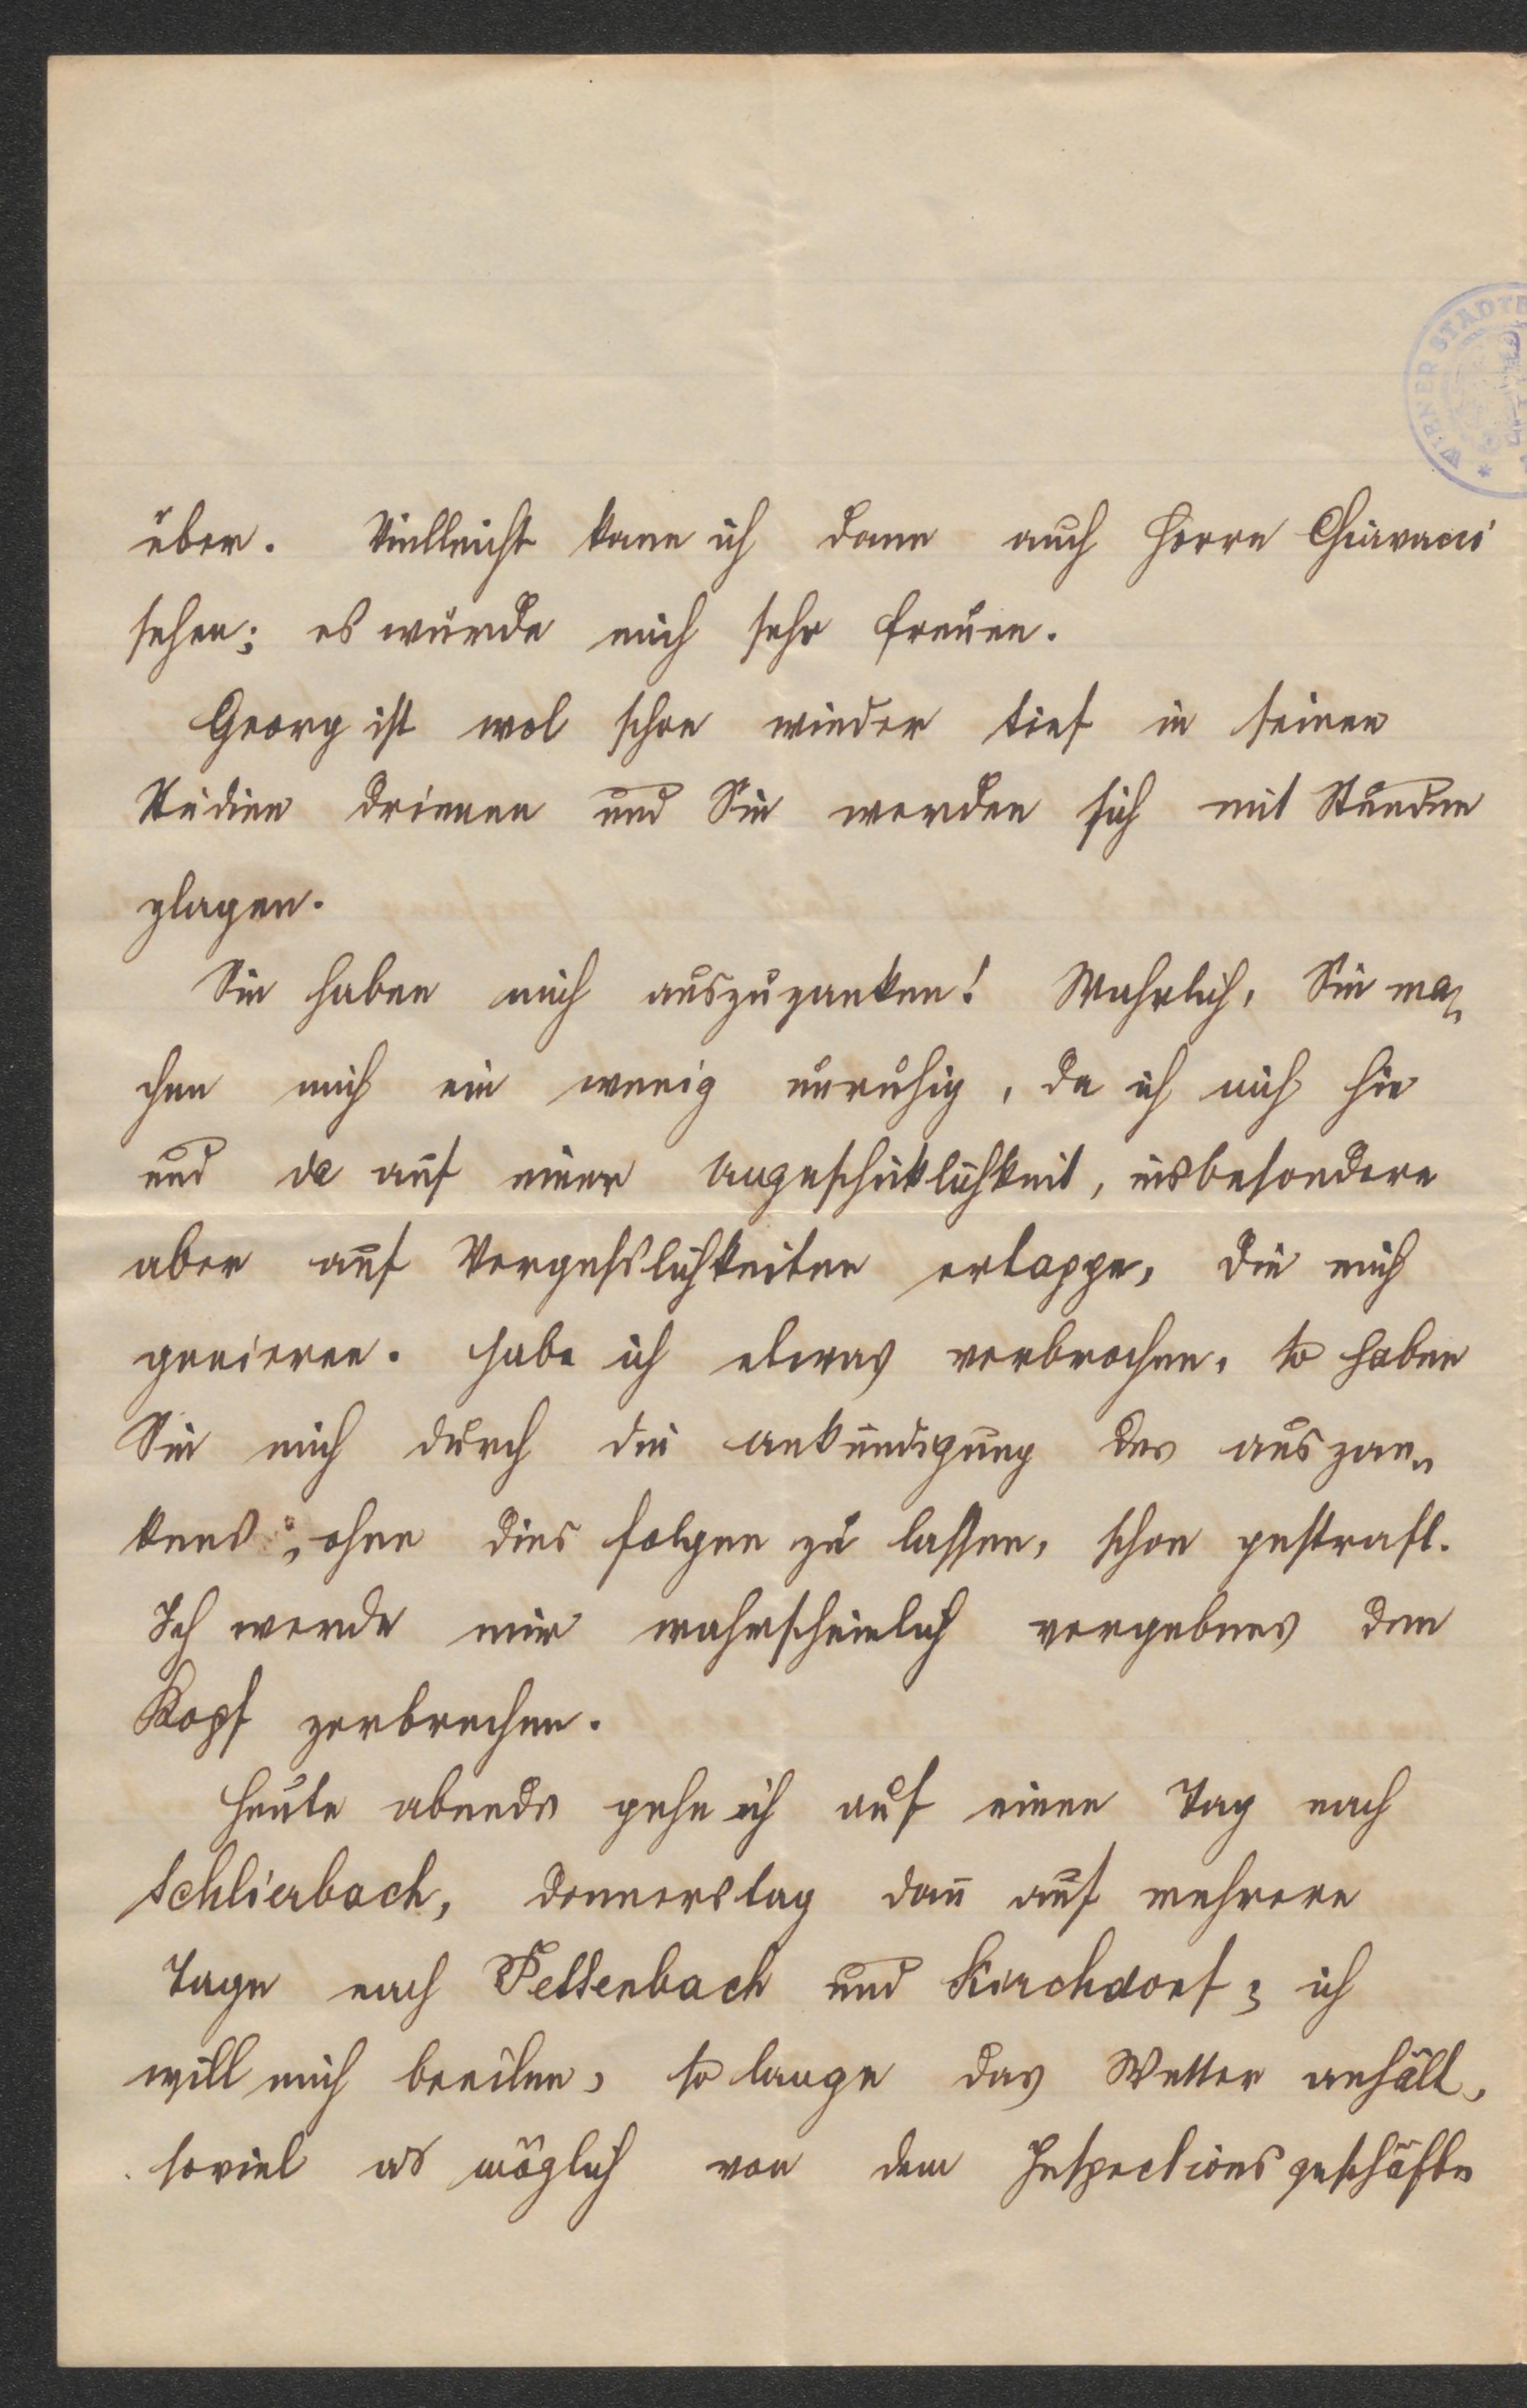 über. Vielleicht kann ich dann auch Herrn Chiavacci
sehen; es würde mich sehr freuen.
Georg ist wol schon wieder tief in seinen
Studien drinnen und Sie werden sich mit Stunden
plagen.
Sie haben mich auszuzanken! Wahrlich, Sie ma„
chen mich ein wenig unruhig, da ich mich hie
und da auf einer Ungeschicklichkeit, insbesondere
aber auf Vergeßlichkeiten ertappe, die mich
genieren. Habe ich etwas verbrochen, so haben
Sie mich durch die Ankündigung des Auszan„
kens, ohne dies folgen zu lassen, schon gestraft.
Ich werde mir wahrscheinlich vergebens den
Kopf zerbrechen.
Heute abends gehe ich auf einen Tag nach
Schlierbach, Donnerstag dañ auf mehrere
Tage nach Pettenbach und Kirchdorf; ich
will mich beeilen, so lange das Wetter anhält,
soviel als möglich von dem Inspectionsgeschäfte
WIENER STADTB